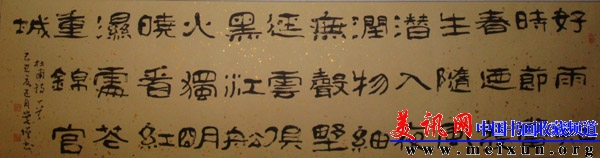 好雨
時節
春迺
生隨
潛入夜
潤物細
無聲野
徑雲俱
黑江舩
火獨明
曉看紅
濕處花
重錦官
城
杜甫詩一首
美讯网 中国书画收藏频道
http://www.meixun.org